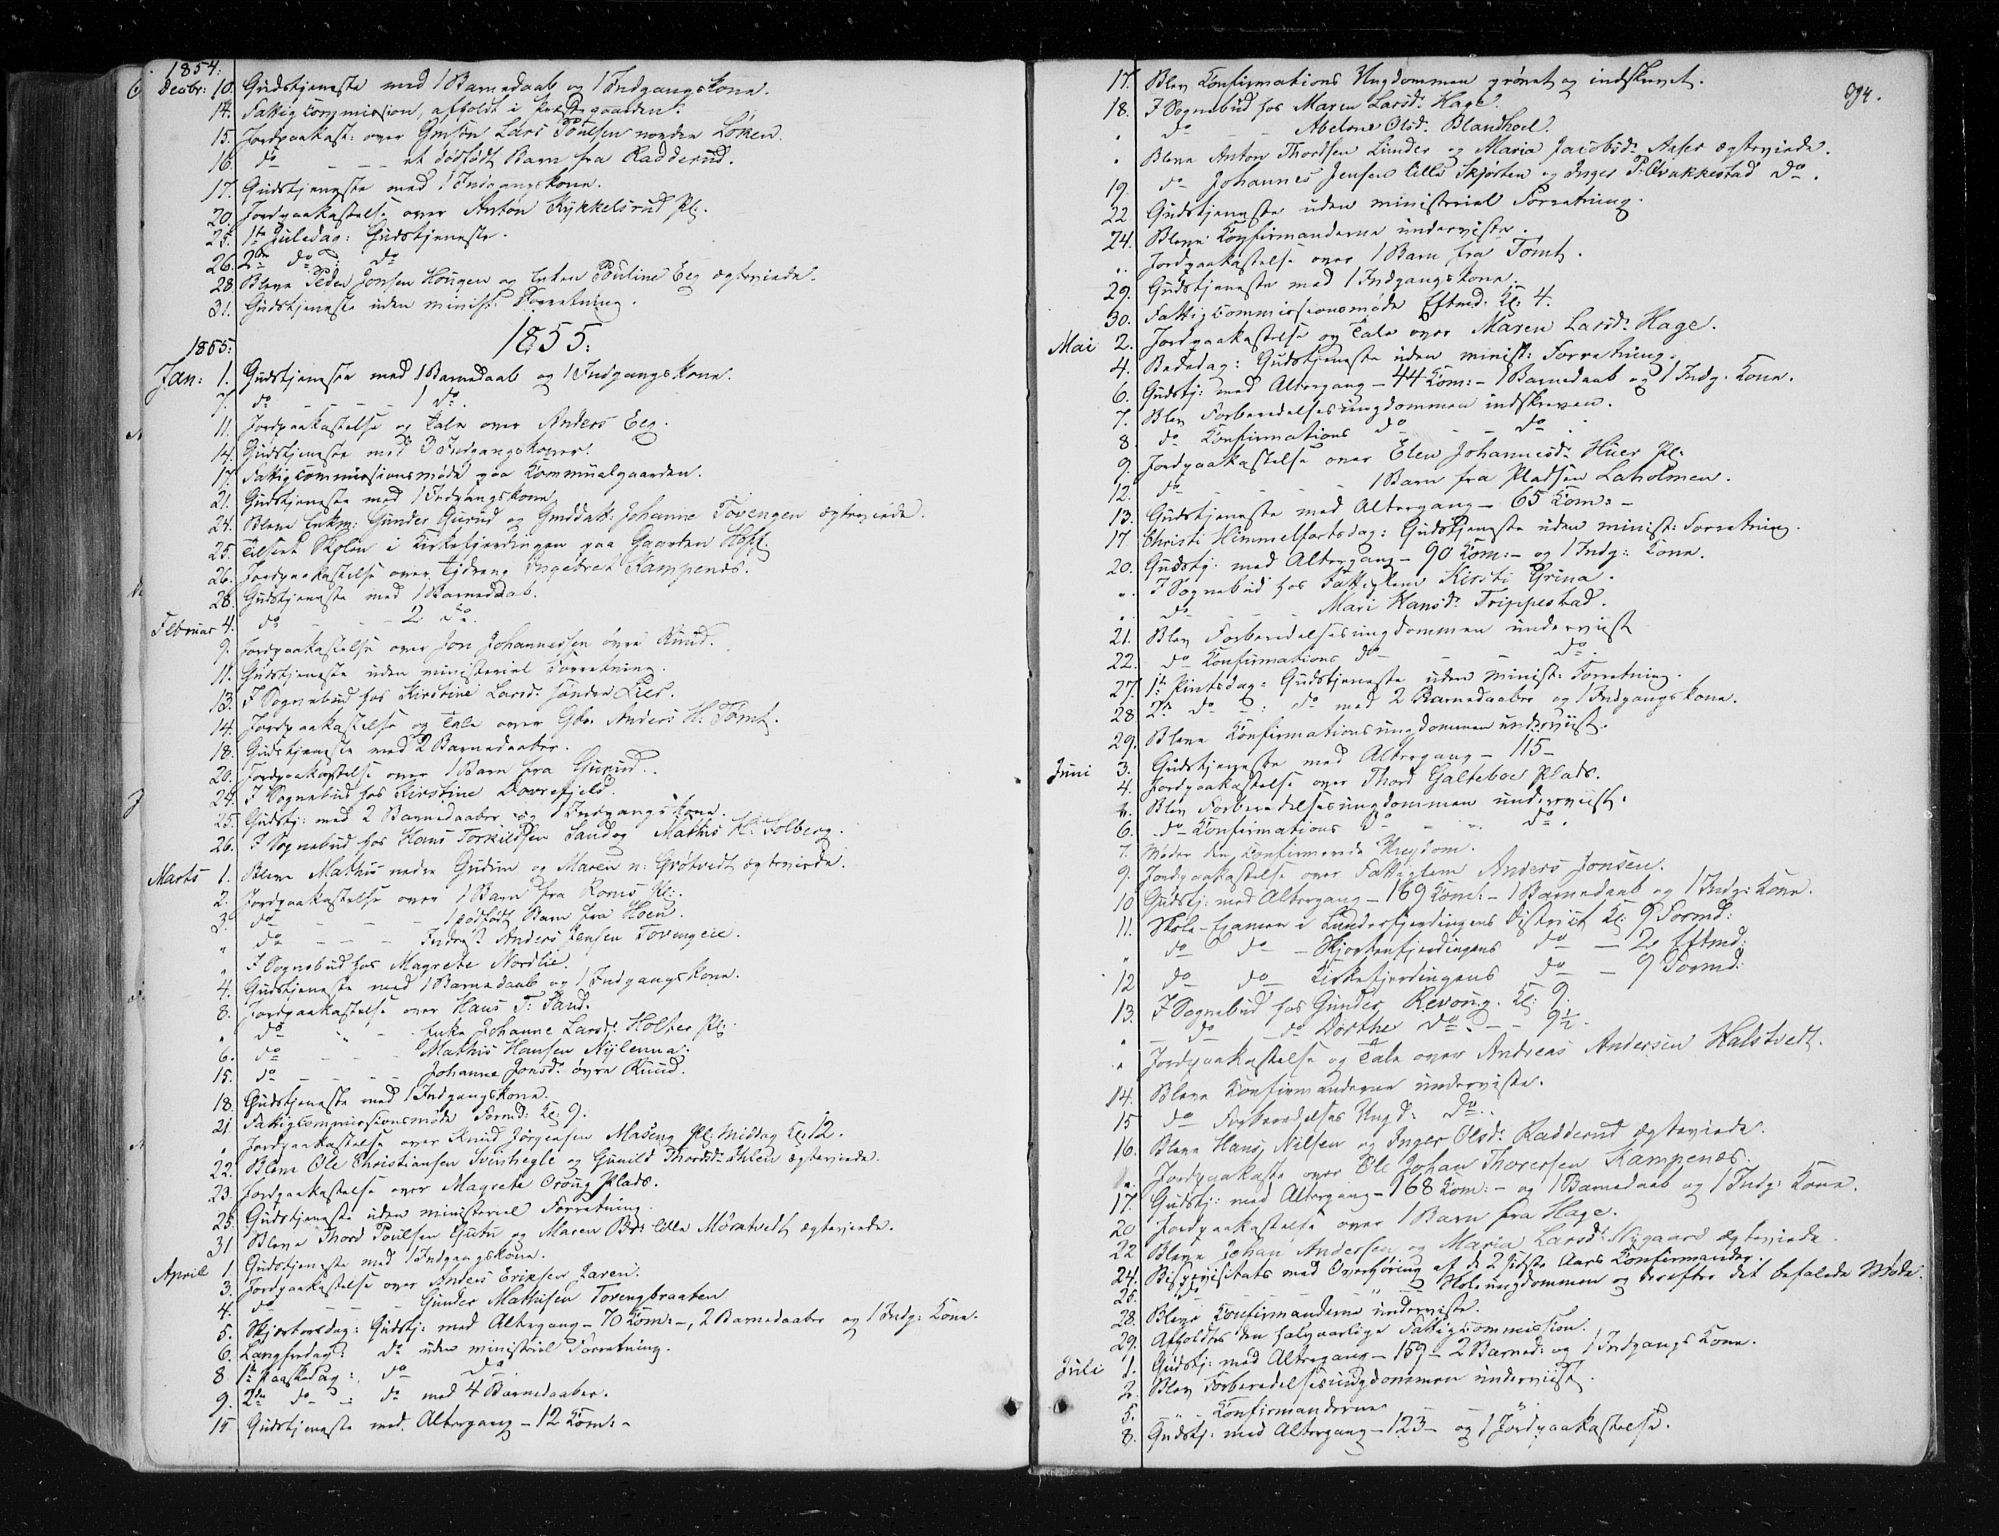 1854.
Decbr: 10. Gudstjeneste med 1 Barnedaab og 1 Indgangskone.
14. Fattigcommission, afholdt i Præstegaarden.
15. Jordpaakast: over Gmstn Lars Poulsen nordre Løken.
16. do — — — et dødfødt Barn fra Radderud.
17. Gudstjeneste med 1 Indgangskone.
20. Jordpaakastelse over Anton Kykkelsrud Pl:
25. 1te Juledag: Gudstjeneste.
26. 2den do : do
28. Bleve Peder Jonsen Hougen og Enken Pauline Eeg ægteviede.
31. Gudstjeneste uden minist: Forretning.
1855:
1855:
Jan: 1. Gudstjeneste med 1 Barnedaab og 1 Indgangskone.
7. do — — — 1 do.
11. Jordpaakastelse og Tale over Anders Eeg.
14. Gudstjeneste med 3 Indgangskoner.
17. Fattigcommissionsmøde paa Kommunalgaarden.
21. Gudstjeneste med 1 Indgangskone
24. Bleve Enkm: Gunder Gurud og Gmddatt: Johanne Tovengen ægteviede.
25. Tilseet Skolen i Kirkefjerdingen paa Gaarden Hoff.
26. Jordpaakastelse over Ingebret Kampenæs.
28. Gudstjeneste med 1 Barnedaab.
Februar 4. do — — 2 do.
9. Jordpaakastelse over Jon Johannessen øvre Ruud.
11. Gudstjeneste uden ministeriel Forretning.
13. I Sognebud hos Kirstine Larsd: søndre Lier.
14. Jordpaakastelse og Tale over Gbr. Anders H: Tomt.
18. Gudstjeneste med 2 Barnedaaber.
20. Jordpaakastelse over 1 Barn fra Gurud.
24. I Sognebud hos Kirstine Dovrefjeld.
25. Gudstj: med 2 Barnedaaber og 1 Indgangskone.
26. I Sognebud hos Hans Torkildsen Sand og Mathis H: Solberg.
Marts 1. Bleve Mathis nedre Gudim og Maren n: Grøtvedt ægteviede.
2. Jordpaakastelse over 1 Barn fra Roms Pl:.
3. do — — — 1 dødfødt Barn fra Hoen.
" do — — — Inders: Anders Jensen Tovengeie.
" I Sognebud hos Magrete Nordlie.
4. Gudstjeneste med 1 Barnedaab og 1 Indgangskone.
8. Jordpaakastelse over Hans T: Sand.
" do " — Enke Johanne Larsd: Holter Pl:
6. do — — Mathis Hansen Nylenna.
15. do — — — Johanne Jonsd: øvre Ruud.
18. Gudstjeneste med 1 Indgangskone.
21. Fattigcommissionsmøde Formd: Kl: 9.
" Jordpaakastelse over Knud Jørgensen Maseng Pl: Middag Kl: 12.
22. Bleve Ole Christiansen Svinhegle og Gunild Thordsd: Ihlen ægteviede.
23. Jordpaakastelse over Magrete Oroug Plads.
25. Gudstjeneste uden ministeriel Forretning.
31. Bleve Thord Poulsen Gutu og Maren Br: lille Mørstvedt ægteviede.
April 1. Gudstjeneste med 1 Indgangskone.
3. Jordpaakastelse over Anders Eriksen Jaren.
4. do — — — Gunder Mathisen Tovengbraaten
5. Skjærtorsdag: Gudstj: med Altergang — 70 Kom: —, 2 Barnedaaber og 1 Indg: Kone.
6. Langfredag: do uden ministeriel Forretning.
8. 1te Paaskedag: do do
9. 2den do — : do med 4 Barnedaaber.
15 Gudstjeneste med Altergang — 12 Kom: —
394.
17. Blev Confirmations Ungdommen prøvet og indskrevet.
18. I Sognebud hos Maren Larsd: Hage.
" do — — Abelone Olsd: Blandhoel.
" Bleve Anton Thordsen Lunder og Maria Jacobsd: Asfer ægteviede.
19. do Johannes Jensen lille Skjørten og Inger P: Qvakkestad do.
22 Gudstjeneste uden ministerial Forretning.
24. Bleve Konfirmanderne underviste.
" Jordpaakastelse over 1 Barn fra Tomt.
29. Gudstjeneste med 1 Indgangskone.
30. Fattigcommissionsmøde Eftmd: Kl: 4.
Mai 2. Jordpaakastelse og Tale over Maren Larsd: Hage.
4. Bededag: Gudstjeneste uden minist: Forretning.
6. Gudstj: med Altergang — 44 Kom: — 1 Barnedaab og 1 Indg: Kone.
7. Blev Forberedelsesungdommen indskreven.
8. do Konfirmations do — do.
9. Jordpaakastelse over Elen Johannesd: Huer Pl:
12. do — — — 1 Barn fra Pladsen Laholmen.
13. Gudstjeneste med Altergang — 65 Kom: —
17 Christi Himmelfartsdag: Gudstjeneste uden minist: Forretning.
20. Gudstj: med Altergang — 90 Kom: — og 1 Indg: Kone.
" I Sognebud hos Fattiglem Kirsti Grina.
" do — — Mari Hansd: Trippestad.
21. Blev Forberedelsesungdommen underviist
22. do Konfirmations do — — do.
27. 1te Pintsdag: Gudstjeneste uden minist: Forretning.
28. 2den do : do med 2 Barnedaaber og 1 Indgangskone.
29. Bleve Konfirmationsungdommen underviist.
Juni 3. Gudstjeneste med Altergang — 115 —
4. Jordpaakastelse over Thord Galteboe Plads.
" Blev Forberedelsesungdommen underviist.
6. do Konfirmations do — " do.
7. Møder den konfirmerede Ungdom.
9. Jordpaakastelse over Fattiglem Anders Jonsen.
10 Gudstj: med Altergang — 169 Kom: — 1 Barnedaab og 1 Indg: Kone.
11. Skole-Examen i Lunderfjerdingens District Kl: 9 Formd:
" do do — Skjørtenfjerdingens do — 2 Eftmd:
12 do do — Kirkefjerdingens do — 9 Formd:
13. I Sognebud hos Gunder Revoug. Kl: 9.
" — do — do Dorthe do. — — 9½.
" Jordpaakastelse og Tale over Andreas Andersen Halstvedt.
14. Bleve Konfirmanderne underviste.
15 do Forberedelses Ungd: do.
16. Bleve Hans Nilsen og Inger Olsd: Radderud ægteviede.
" Jordpaakast: over Ole Johan Thoresen Kampenæs.
17. Gudstj: med Altergang — 168 Kom: — og 1 Barnedaab og 1 Indg: Kone.
20 Jordpaakastelse over 1 Barn fra Hage.
22 Bleve Johan Andersen og Maria Larsd: Nygaard ægteviede.
24. Bispevisitats med Overhøring af de 2 sidste Aars Konfirmander.
25. do — " — " Skoleungdommen og derefter det befalede Møde.
28. Bleve Konfirmanderne underviste.
29. Afholdtes den halvaarlige Fattigcommission.
Juli 1. Gudstj: med Altergang — 159 — 2 Barned: og 1 Indgangs Kone.
2. Blev Forberedelsesungdommen underviist.
5. " Konfirmanderne "
8. Gudstj: med Altergang — 123 — og 1 Jordpaakastelse.